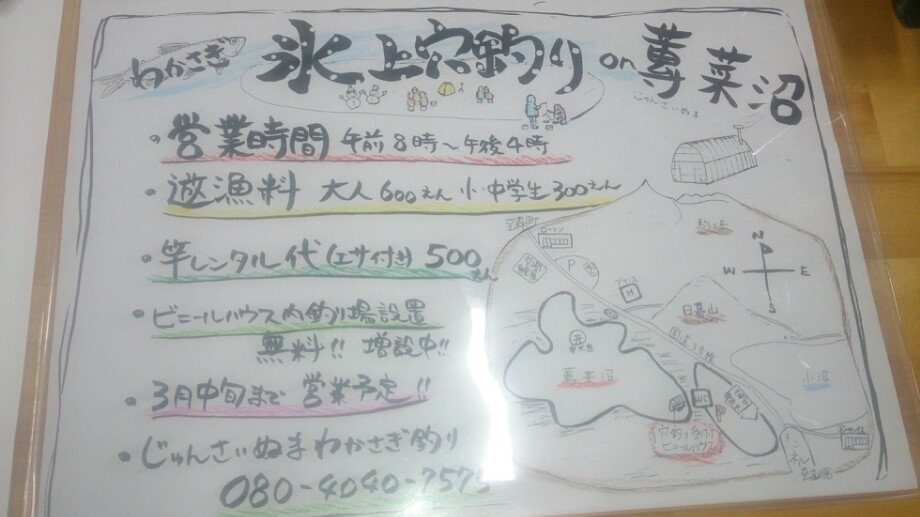 わかさぎ 氷上穴釣り on 蓴菜沼
じゅんさいぬま
・営業時間 午前8時～午後4時
・遊漁料 大人600えん 小・中学生300えん
・竿レンタル代(エサ付き) 500えん
・ビニールハウス内釣り場設置
無料!! 増設中!!
・3月中旬まで営業予定!!
・じゅんさいぬまわかさぎ釣り
080-4040-7575
駒ヶ岳
N
W E
S
至森町
ローソン
P
H
日暮山
国道5号線
蓴菜沼
小沼
WC
穴釣り受付
ビニールハウス